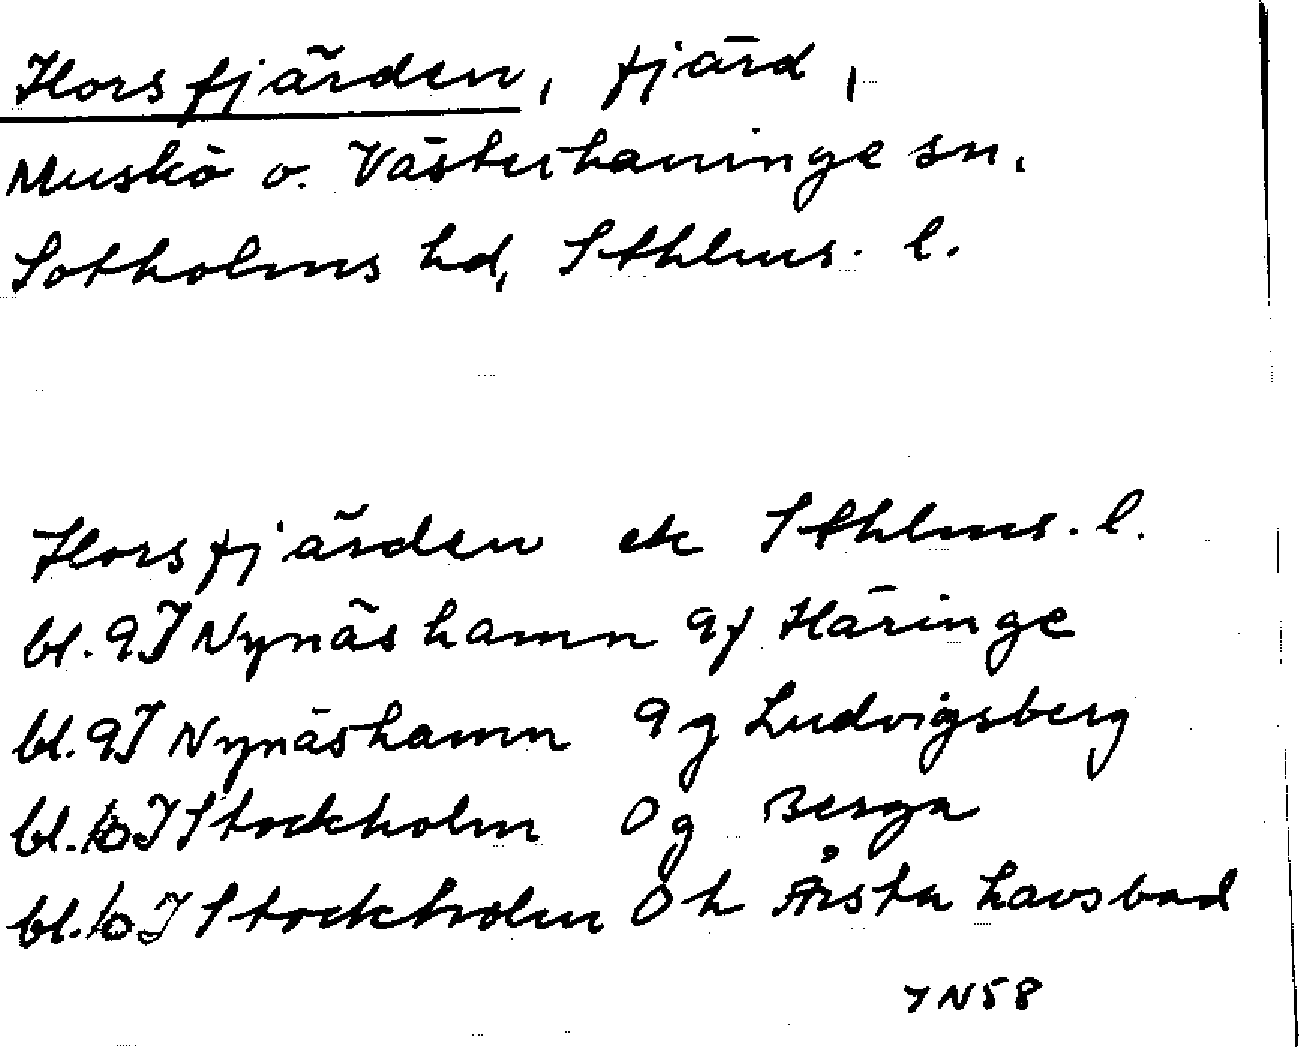 Horsfjärden, fjärd,
Muskö o. Västerhaninge sn.
Sotholms hd, Sthlms. l.
Horsfjärden ek Sthlms. l.
bl. 9I Nynäshamn 9f Häringe
bl. 9I Nynäshamn 9g Ludvigsberg
bl. 10I Stockholm 0g Berga
bl. 10I Stockholm 0h Årsta havsbad
YN58